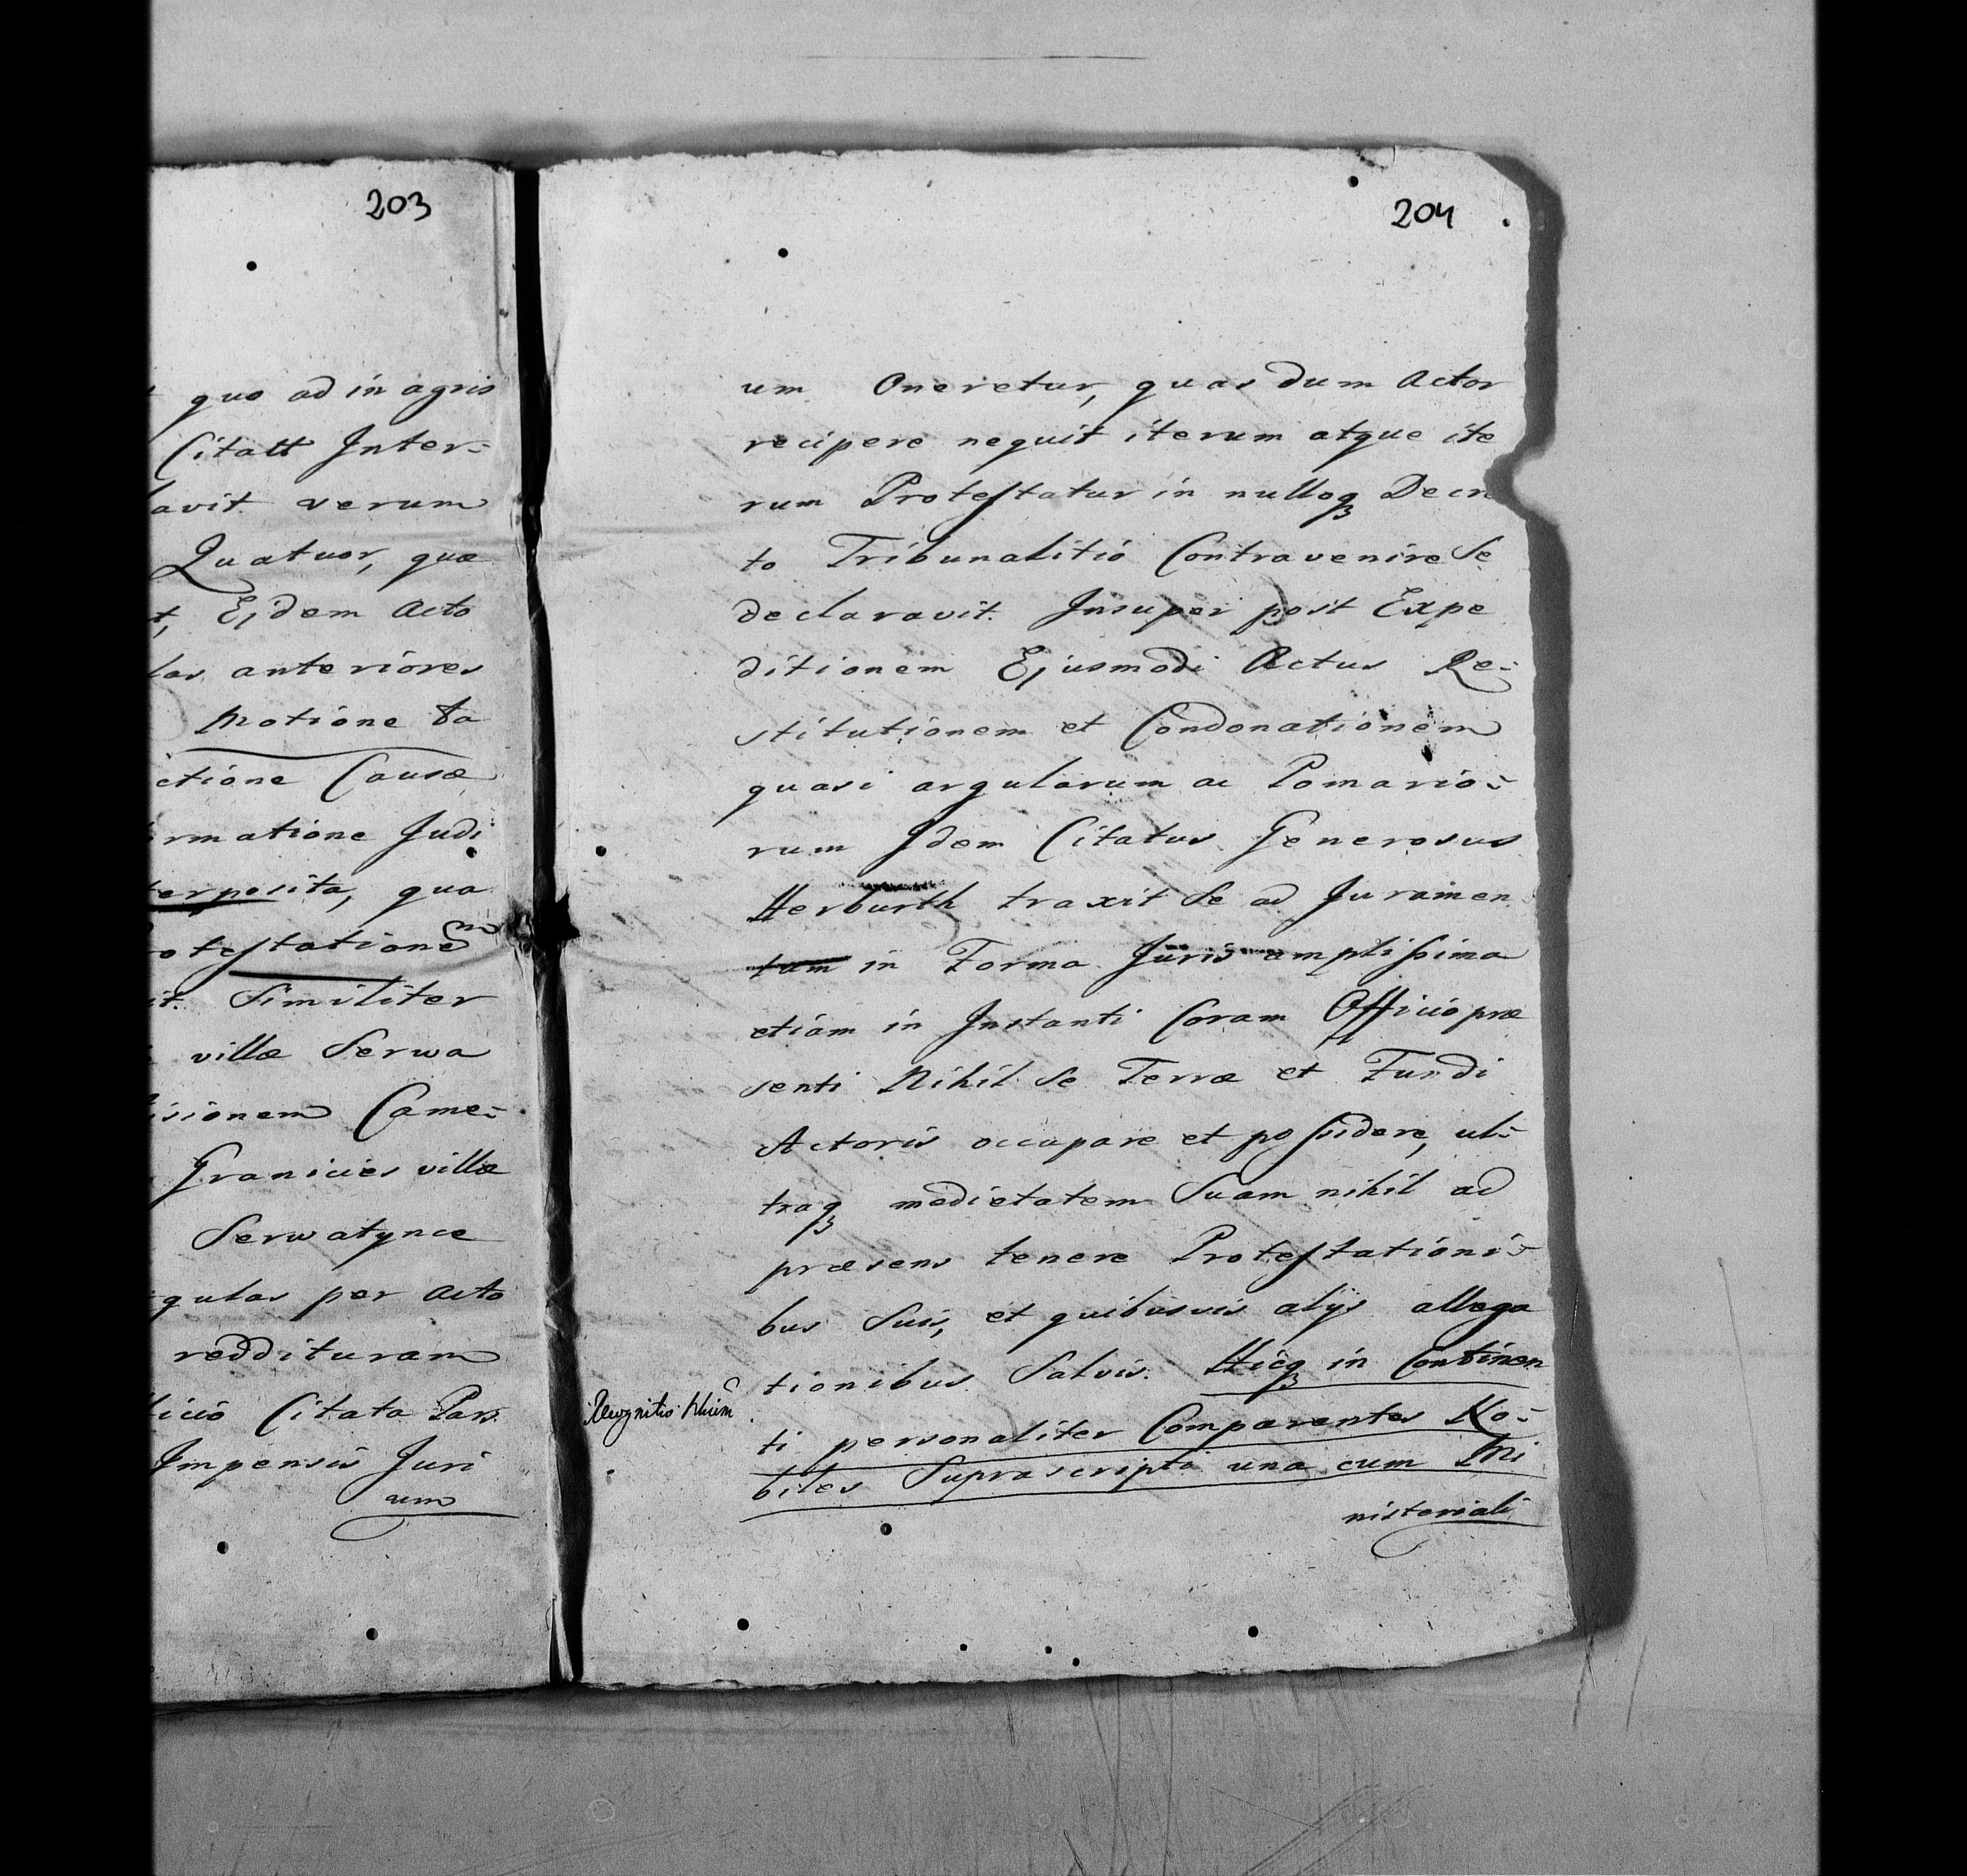 203
quo ad in agris
Citatt Inter-
lavit verum
Quatuor, quæ
t, Ejdem Acto
las anteriores
Motione ta
ctione Causæ
ormatione Judi
terposita, qua
otestationem
it. Similiter
villæ Serwa
isionem Came-
Granicies villæ
Serwatynce
gulas per Acto
reddituram
icio Citata Pars
Impensis Juri
um
204
um Oneretur, quas dum Actor
recipere nequit iterum atque ite
rum Protestatur in nulloq₃ Decre
to Tribunalitio Contravenire Se
declaravit. Insuper post Expe
ditionem Ejusmodi Actus Re-
stitutionem et Condonationem
quasi argularum ac Pomario-
rum Idem Citatus Generosus
Herburth traxit Se ad Juramen
tum in Forma Juris amplissima
etiam in Instanti Coram Officio præ
senti Nihil Se Terræ et Fundi
Actoris occupare et possidere, ul-
traq₃ medietatem Suam nihil ad
præsens tenere Protestationi-
bus Suis, et quibusvis alijs allega
tionibus Salvis. Hicq₃ in Continen
Recognitio
ti personaliter Comparentes No-
biles Suprascripti una cum Mi
nisteriali